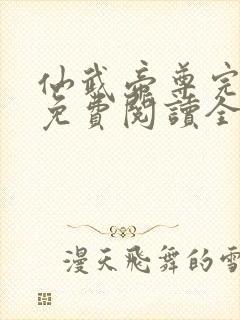 仙武帝尊完
免費閱讀全
漫天飛舞的雪